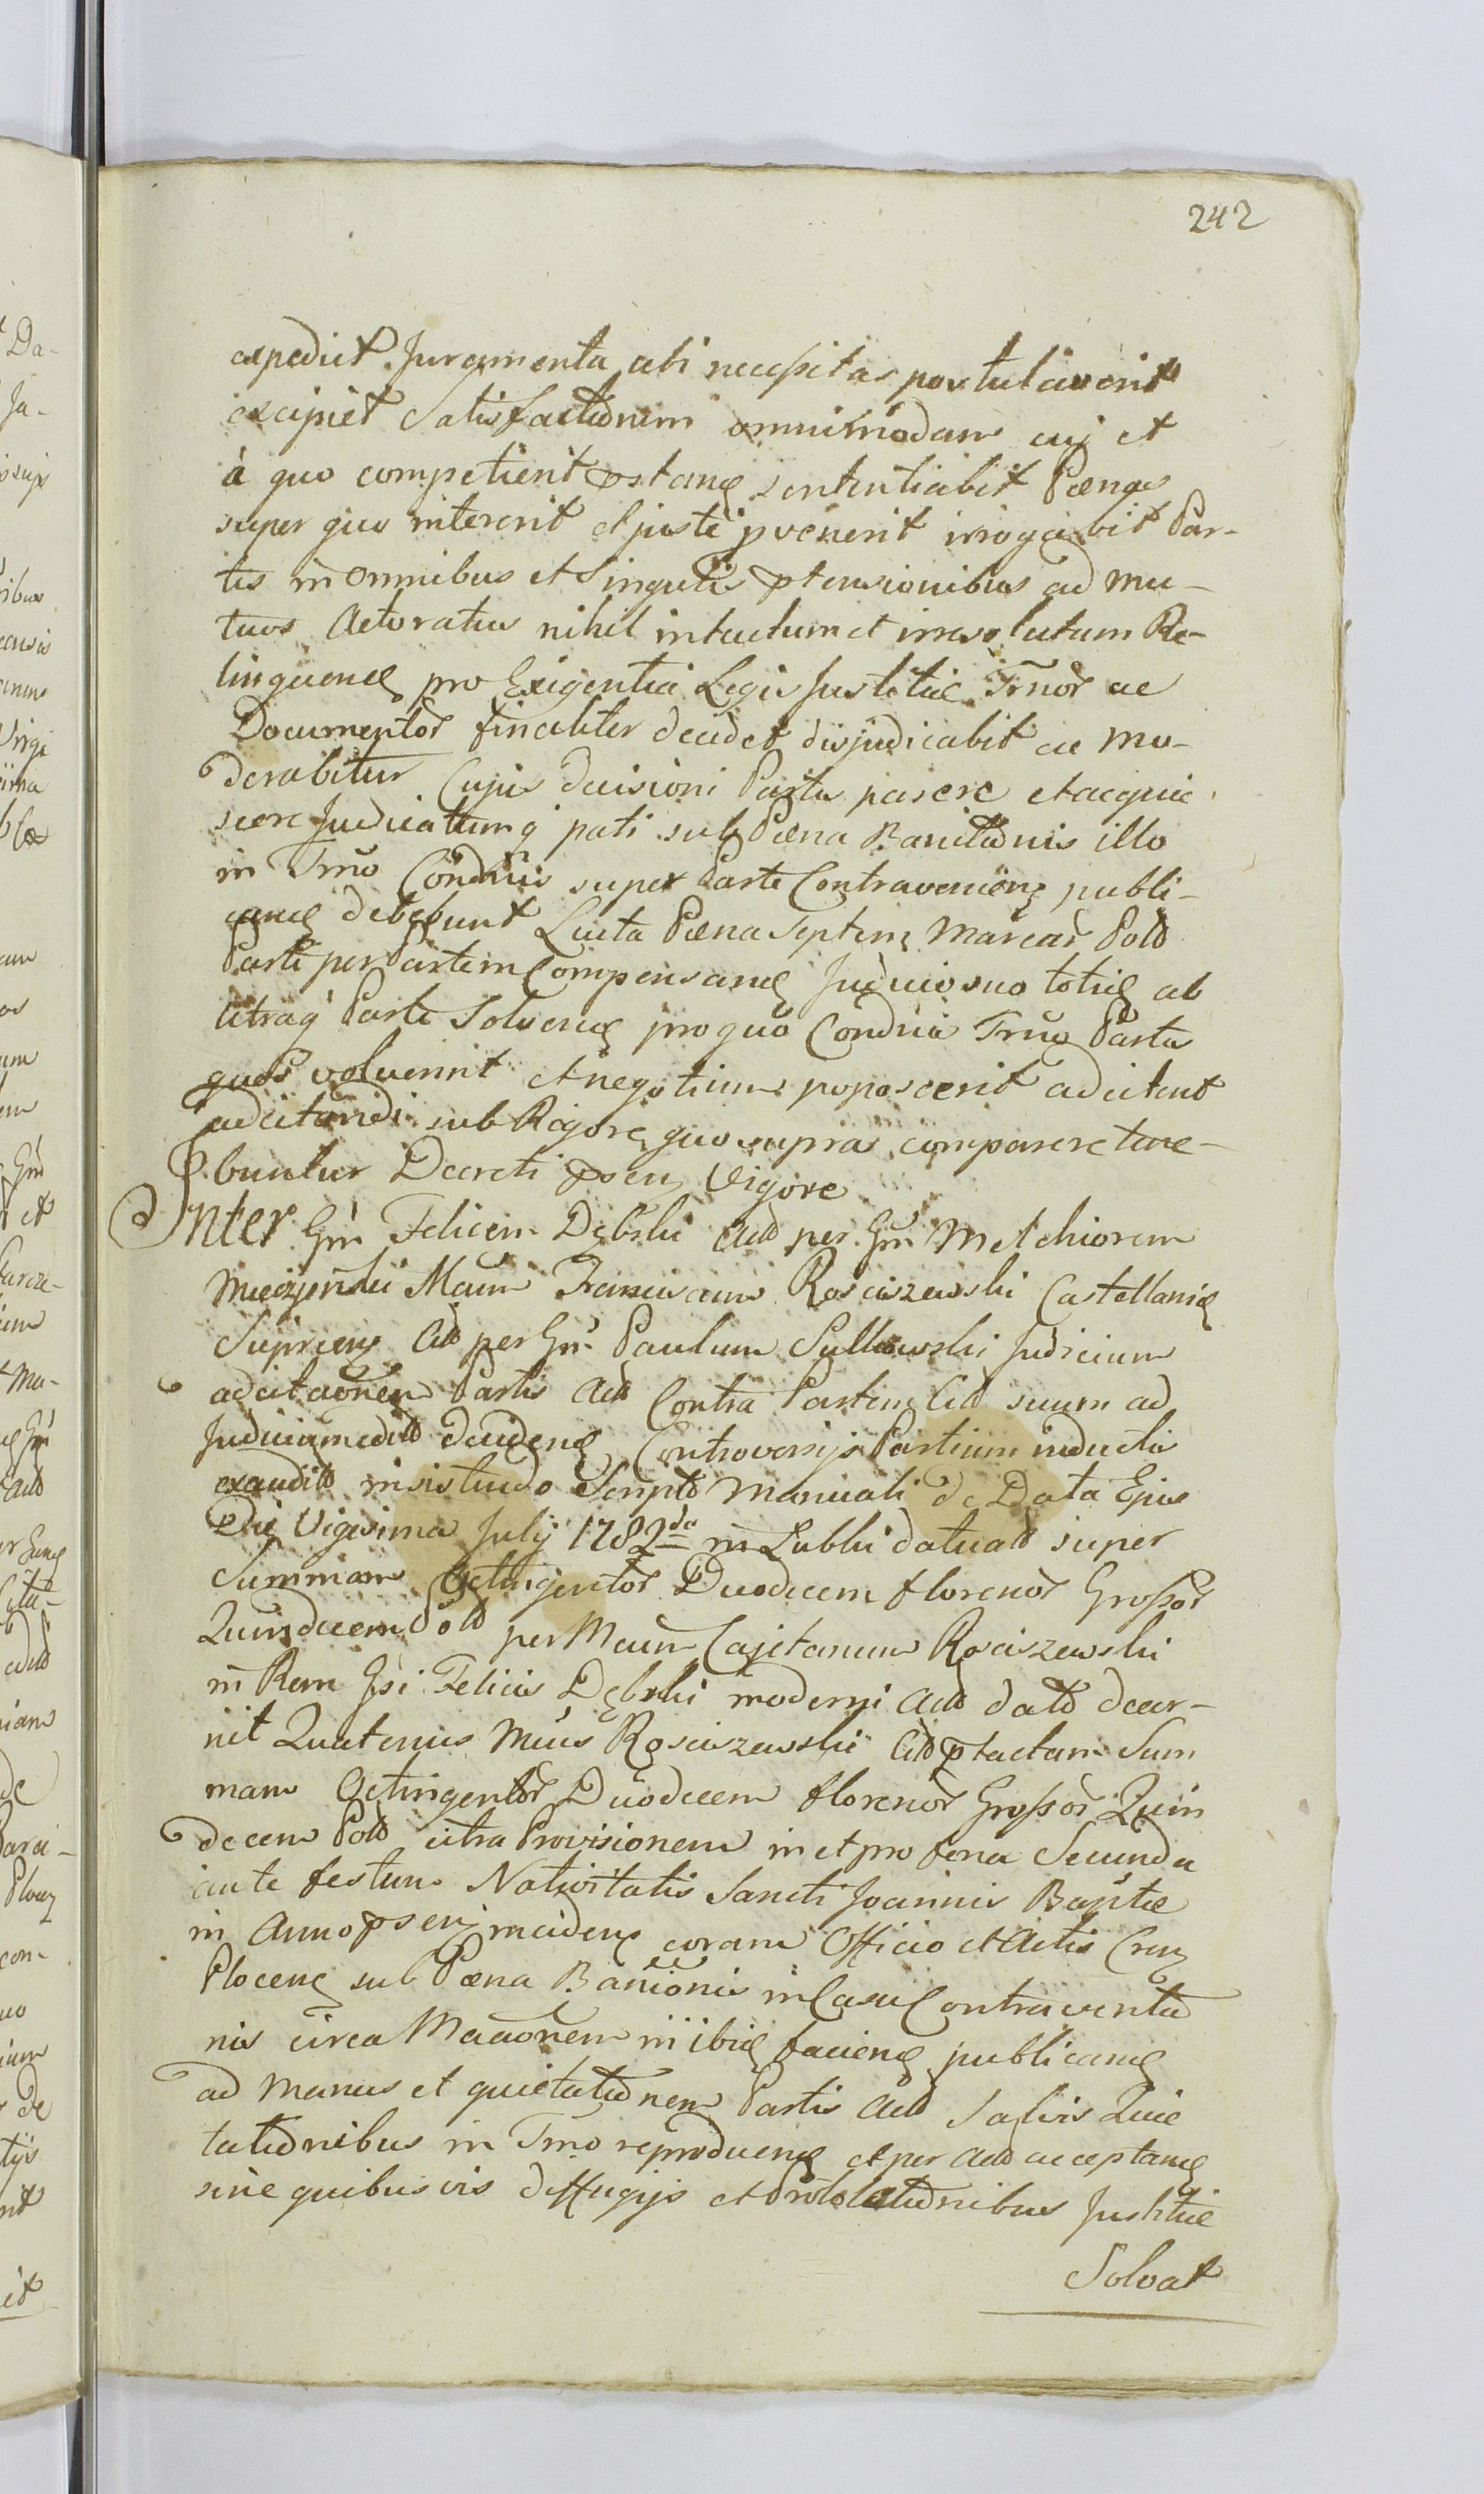 242
expediet Juramenta ubi necessitas postulaverit
excipiet Satisfactionem omnimodam cuj et
à quo competierit sententiabit Pænas
super quo intererit et juste pvenerit irrogabit Par-
tes in omnibus et Singulis ptensionibus ad mu-
tuos Actoratus nihil intactum et irresolutum Re-
linquend pro Exigentia Legis Justitiæ Trnor ac
Documentor finaliter decidet disjudicabit ac mo-
derabitur Cujus Decisioni Partes parere et acquie
scere Judicatumq pati sub Pæna Banitionis illo
in Trno Condicti super Parte Contravenien publi-
cand debebunt Lucta Pæna Septem Marcar Pold
Parti per Partem Compensand Judicio suo toties ab
utraq Parte Solvend pro quo Trno Partes
quos voluerint et negotium poposcerit adcitent
adcitandi sub Rigore quo supra comparere tene-
buntur Decreti psen Vigore
Inter Gm Felicem Dębski Act per Gm Melchiorem
Mieczynski Mcum Franciscum Rosciszewski Castellanid
Cit per Gm Paulum Sulkowski Judicium
adcitationem Partis Act Contra Partem Cit suum ad
Judicium Decidend Controversijs Partium inducta
exaudit insistendo Scripto Manuali de Data Ejus
Die Vigesima July 1782da in Lubki datuato super
Summam Octingentor Duodecem florenor Grossor
Quindecem Pold per Mcum Cajetanum Rosciszewski
in Rem Gsi Felicis Dębski moderni Act dato decer-
nit Quatenus Mcus Rosciszewski Cit ptactam Sum
mam Octingentor Duodecem florenor Grossor Quin
decem Pold citra Provisionem in et pro feria Secunda
ante festum Nativitatis Sancti Joannis Baptæ
in Anno psen inciden coram Officio et Actis
Plocen sub Pæna Banionis in Casu Contraventio
nis circa in ibid faciend publicand
ad manus et quietationem Partis Act Salvis Quie
tationibus in Trno reproducend et per Act acceptand
sine quibusvis diffugijs et Justitiæ
Solvat